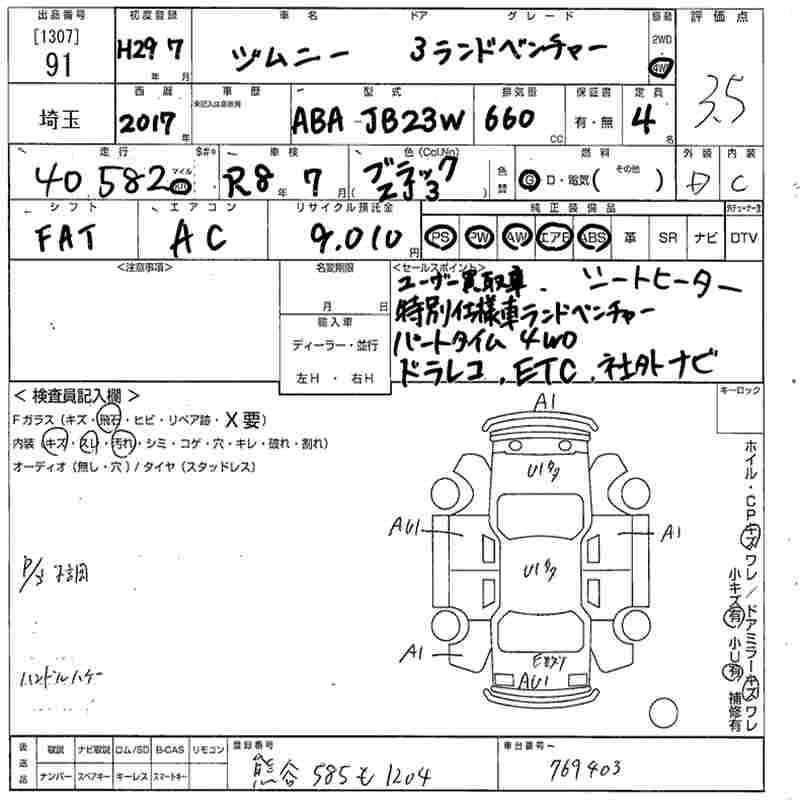 出品番号 初度登録 車名 ドア グレード 駆動 評価点
[1307] 91 H29 7 年 月 ジムニー 3 ランドベンチャー 2WD 4WD 3.5
埼玉 西暦 2017 年 車歴 未記入は自家用 型式 ABA-JB23W 排気量 660 CC 保証書 有・無 定員 4 名
走行 40,582 マイル km $#* 車検 R8 年 7 月 色(Col,No) ブラック ZJ3 色替 燃料 G D・電気( その他 ) 外装 D 内装 C
シフト FAT エアコン AC リサイクル預託金 9,010 円 純正装備品 PS PW AW エアB ABS 革 SR ナビ DTV
<注意事項> 名変期限 月 日 <セールスポイント>
ユーザー買取車. シートヒーター
特別仕様車ランドベンチャー
輸入車 パートタイム 4WD
ディーラー・並行
左H・右H ドラレコ, ETC, 社外ナビ
< 検査員記入欄 > キーロック
Fガラス (キズ・飛石・ヒビ・リペア跡・X要)
内装 (キズ・スレ・汚れ・シミ・コゲ・穴・キレ・破れ・割れ)
オーディオ (無し・穴) / タイヤ (スタッドレス)
A1
U1タタ
AU1
A1
U1タタ
A1
AU1
P/S 不調
ハンドルハゲー
ホイル・CPキズワレ / ドアミラーキズワレ
小キズ有 小U有 補修有
後送品 取説 ナビ取説 ロム/SD B-CAS リモコン 登録番号 車台番号-
ナンバー スペアキー キーレス スマートキー 熊谷 585 も 1204 769403